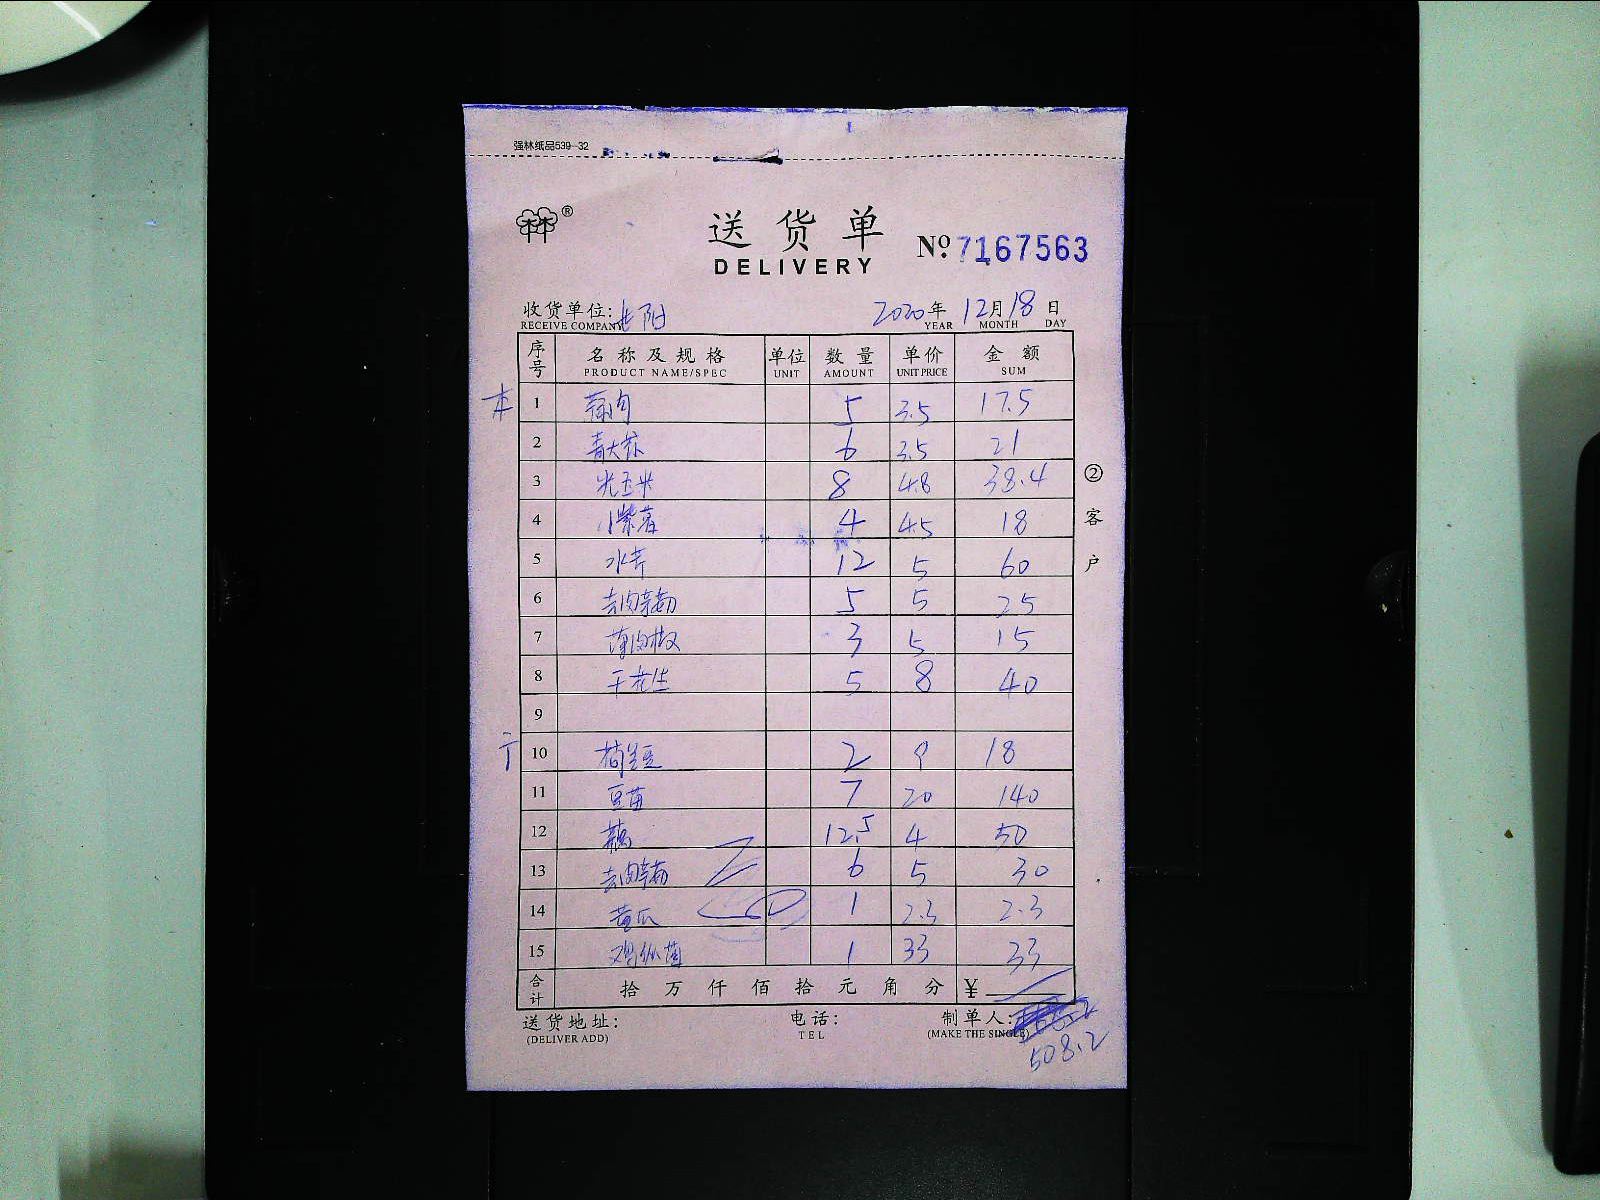 强林纸品539-32
送货单
DELIVERY
№ 7167563
收货单位: 2020年 12月 18日
RECEIVE COMPANY YEAR MONTH DAY
序号 名称及规格 单位 数量 单价 金额
PRODUCT NAME/SPEC UNIT AMOUNT UNIT PRICE SUM
本 1 蒜肉 5 3.5 17.5
2 青大 6 3.5 21
3 光玉米 8 4.8 38.4
4 小紫薯 4 4.5 18
5 水芹 12 5 60
6 去肉 5 5 25
7 薄肉椒 3 5 15
8 干花生 5 8 40
9
10 荷兰豆 2 9 18
11 豆苗 7 20 140
12 藕 12.5 4 50
13 去肉 6 5 30
14 黄瓜 1 2.3 2.3
15 鸡枞菌 1 33 33
合计 拾 万 仟 佰 拾 元 角 分 ¥
送货地址: 电话: 制单人:
(DELIVER ADD) TEL (MAKE THE SINGLE)
508.2
②客户